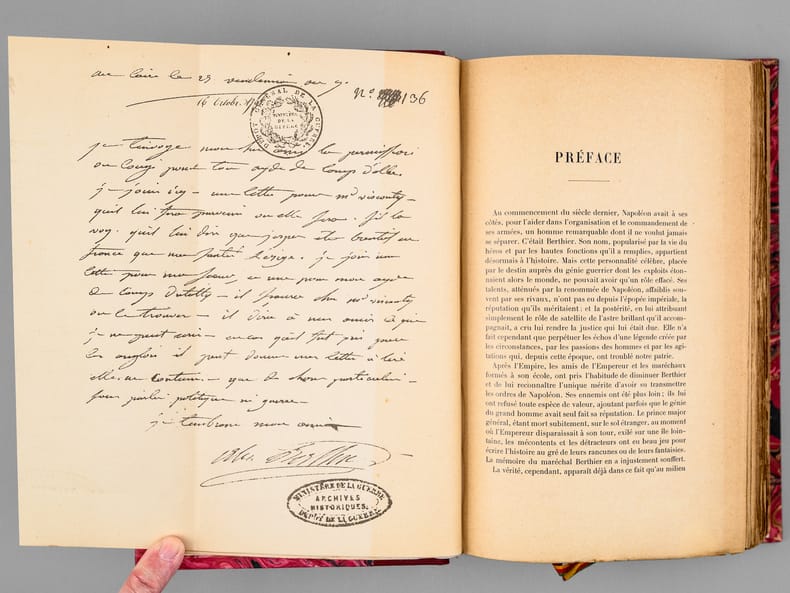 au Caire le 23 vendémiaire an 7.
16 Octob.
nº 136
DÉPOT GÉNÉRAL DE LA GUERRE
MINISTÈRE
DE LA
GUERRE
je t'envoye mon la permission
ou congé pour ton ayde de camp d'
je joins icy une lettre pour me visconty
qu'il lui
voy. qu'il lui dise que j'espère être bientôt en
france que ma santé l'exige. je joins une
lettre pour mon et une pour mon ayde
de camp il trouvera chez me visconty
ou le trouver il dira à mes amis ce que
je ne peut écrire en cas qu'il fut pris par
les anglois il peut donner mes lettres à lire
elle ne contiennent que de choses particulières
sans parler politique ni guerre
je t'embrasse mon ami
Alex. Berthier
MINISTÈRE DE LA GUERRE
ARCHIVES
HISTORIQUES.
DÉPÔT DE LA GUERRE
PRÉFACE
Au commencement du siècle dernier, Napoléon avait à ses
côtés, pour l'aider dans l'organisation et le commandement de
ses armées, un homme remarquable dont il ne voulut jamais
se séparer. C'était Berthier. Son nom, popularisé par la vie du
héros et par les hautes fonctions qu'il a remplies, appartient
désormais à l'histoire. Mais cette personnalité célèbre, placée
par le destin auprès du génie guerrier dont les exploits éton-
naient alors le monde, ne pouvait avoir qu'un rôle effacé. Ses
talents, atténués par la renommée de Napoléon, affaiblis sou-
vent par ses rivaux, n'ont pas eu depuis l'épopée impériale, la
réputation qu'ils méritaient ; et la postérité, en lui attribuant
simplement le rôle de satellite de l'astre brillant qu'il accom-
pagnait, a cru lui rendre la justice qui lui était due. Elle n'a
fait cependant que perpétuer les échos d'une légende créée par
les circonstances, par les passions des hommes et par les agi-
tations qui, depuis cette époque, ont troublé notre patrie.
Après l'Empire, les amis de l'Empereur et les maréchaux
formés à son école, ont pris l'habitude de diminuer Berthier
et de lui reconnaître l'unique mérite d'avoir su transmettre
les ordres de Napoléon. Ses ennemis ont été plus loin ; ils lui
ont refusé toute espèce de valeur, ajoutant parfois que le génie
du grand homme avait seul fait sa réputation. Le prince major
général, étant mort subitement, sur le sol étranger, au moment
où l'Empereur disparaissait à son tour, exilé sur une île loin-
taine, les mécontents et les détracteurs ont eu beau jeu pour
écrire l'histoire au gré de leurs rancunes ou de leurs fantaisies.
La mémoire du maréchal Berthier en a injustement souffert.
La vérité, cependant, apparaît déjà dans ce fait qu'au milieu